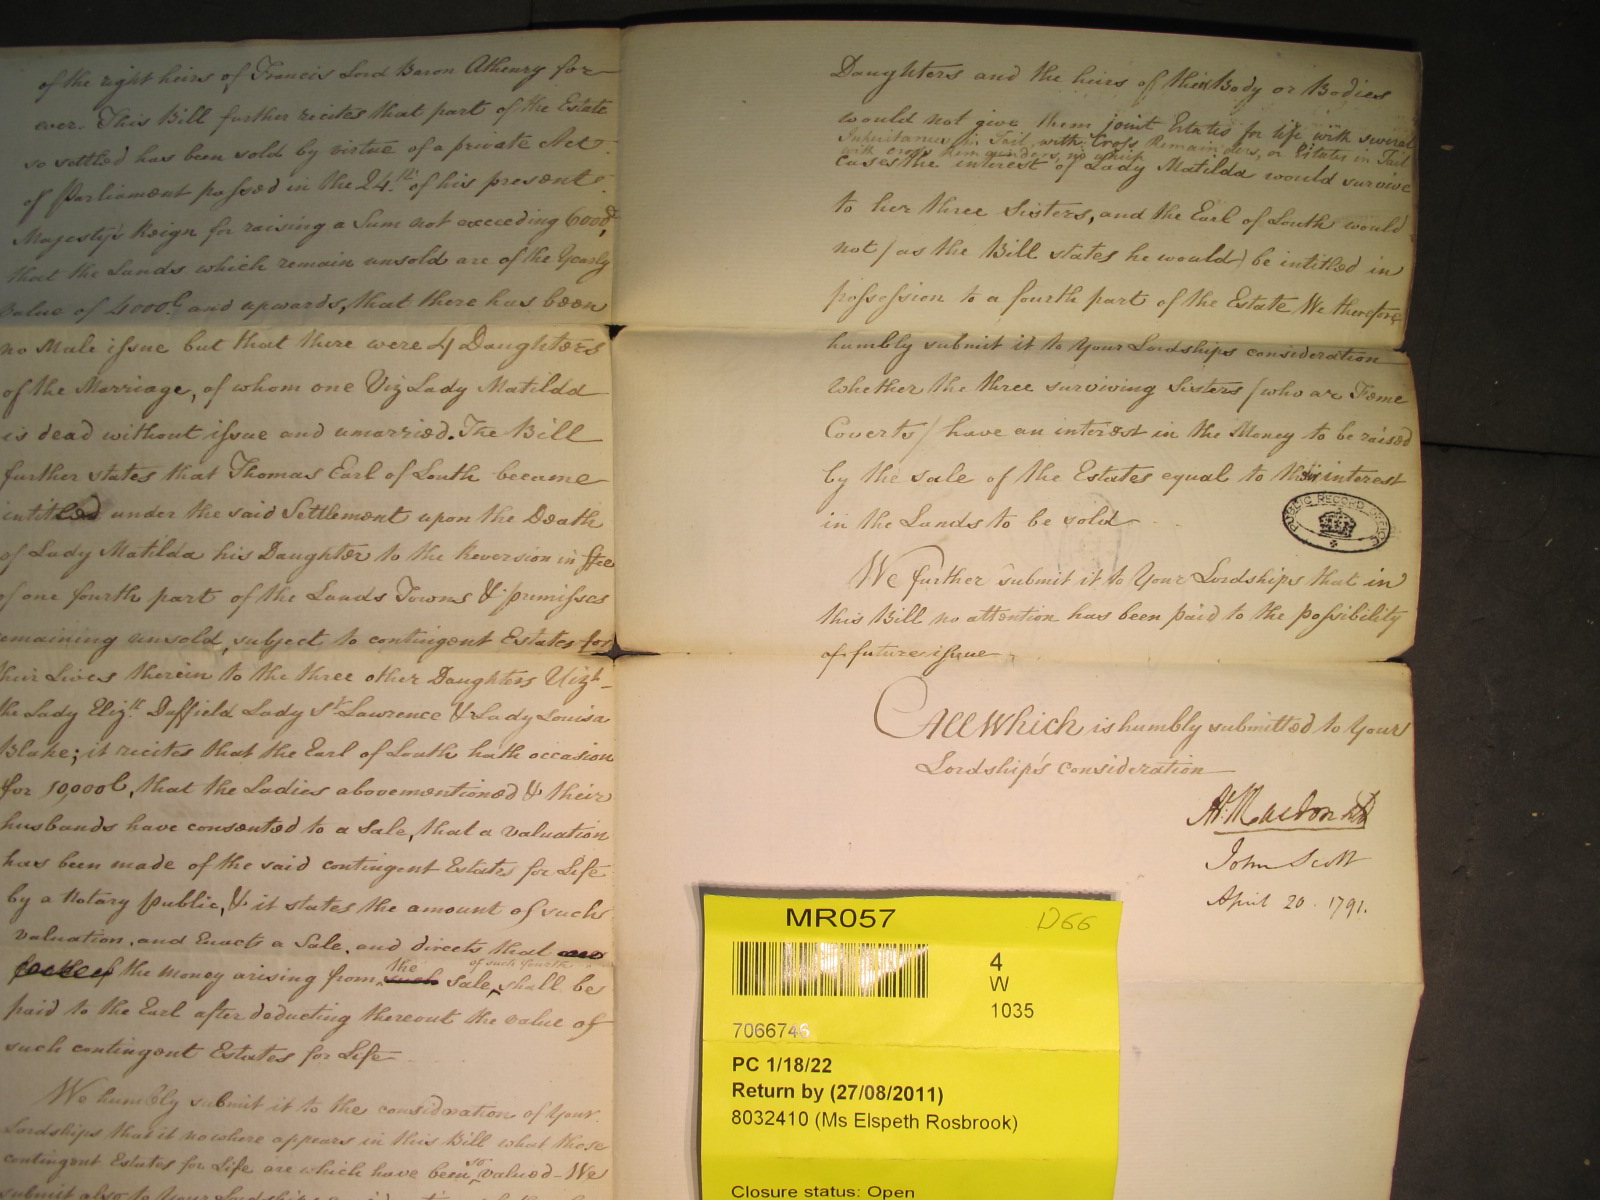 of the right heirs of Francis Lord Baron Athenry for
ever. This Bill further recites that part of the Estate
so settled has been sold by virtue of a private Act
of Parliament passed in the 24.th of his present
Majesty's Reign for raising a Sum not exceeding 6000£,
that the Lands which remain unsold are of the Yearly
value of 4000£ and upwards, that there has been
no Male issue but that there were 4 Daughters
of the Marriage, of whom one Viz Lady Matilda
is dead without issue and unmarried. The Bill
further states that Thomas Earl of Louth became
intitled under the said Settlement upon the Death
of Lady Matilda his Daughter to the Reversion in ffee
of one fourth part of the Lands Towns & premisses
remaining unsold, subject to contingent Estates for
their Lives therein to the three other Daughters Vizt
the Lady Eliz.th Duffield Lady St Lawrence & Lady Louisa
Blake; it recites that the Earl of Louth hath occasion
for 10,000£, that the Ladies abovementioned & their
husbands have consented to a Sale, that a valuation
has been made of the said contingent Estates for Life
by a Notary public, & it states the amount of such
valuation, and Enacts a Sale, and directs that
the money arising from the such Sale of such fourth shall be
paid to the Earl after deducting thereout the value of
such contingent Estates for Life
We humbly submit it to the consideration of Your
Lordships that it nowhere appears in this Bill what those
contingent Estates for Life are which have been so valued - We
submit also to Your Lordships
Daughters and the heirs of their Body or Bodies
would not give them joint Estates for life with several
Inheritances in Tail, with Cross Remainders, or Estates in Tail
with cross Remainders, in which
cases the interest of Lady Matilda would survive
to her three Sisters, and the Earl of Louth would
not (as the Bill states he would) be intitled in
possession to a fourth part of the Estate We therefore
humbly submit it to Your Lordships consideration
Whether the three surviving Sisters (who are Feme
Coverts) have an interest in the Money to be raised
by the sale of the Estates equal to their interest
in the Lands to be sold
We further submit it to Your Lordships that in
this Bill no attention has been paid to the possibility
of future issue
All Which is humbly submitted to Your
Lordship's Consideration
Ar. Macdonald
John Scott
April 20. 1791.
PUBLIC RECORD OFFICE
MR057
D66
4
W
1035
7066746
PC 1/18/22
Return by (27/08/2011)
8032410 (Ms Elspeth Rosbrook)
Closure status: Open